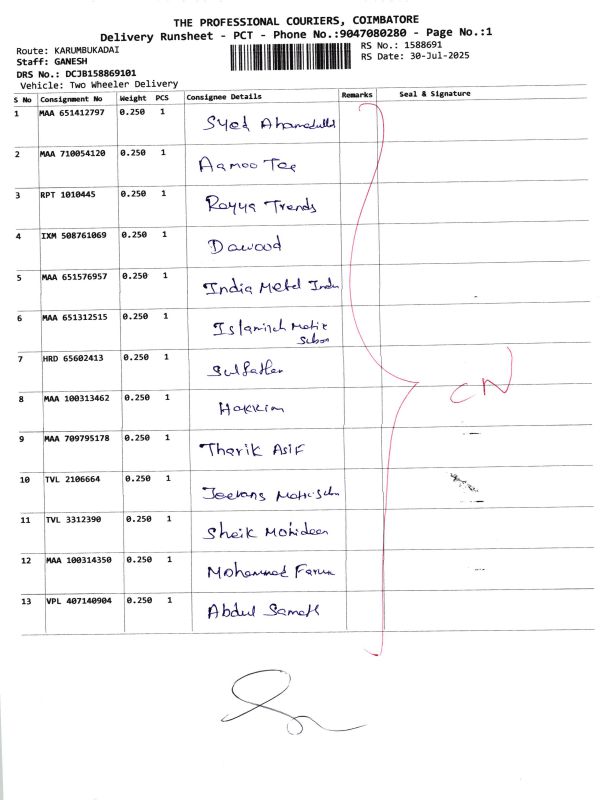 THE PROFESSIONAL COURIERS, COIMBATORE
Delivery Runsheet - PCT - Phone No.:9047080280 - Page No.:1
Route: KARUMBUKADAI
RS No.: 1588691
Staff: GANESH
RS Date: 30-Jul-2025
DRS No.: DCJB158869101
Vehicle: Two Wheeler Delivery
S No Consignment No Weight PCS Consignee Details Remarks Seal & Signature
1 MAA 651412797 0.250 1 Syed Ahamedulla
2 MAA 710054120 0.250 1 Aamoo Tee
3 RPT 1010445 0.250 1 Rayya Trends
4 IXM 508761069 0.250 1 Dawood
5 MAA 651576957 0.250 1 India Metal Indu
6 MAA 651312515 0.250 1 Islamich Matix
7 HRD 65602413 0.250 1
CN
8 MAA 100313462 0.250 1 Hakkim
9 MAA 709795178 0.250 1 Tharik Asif
10 TVL 2106664 0.250 1 Jeevans
11 TVL 3312390 0.250 1 Sheik Mohideen
12 MAA 100314350 0.250 1 Mohammed Faruk
13 VPL 407140904 0.250 1 Abdul Samath